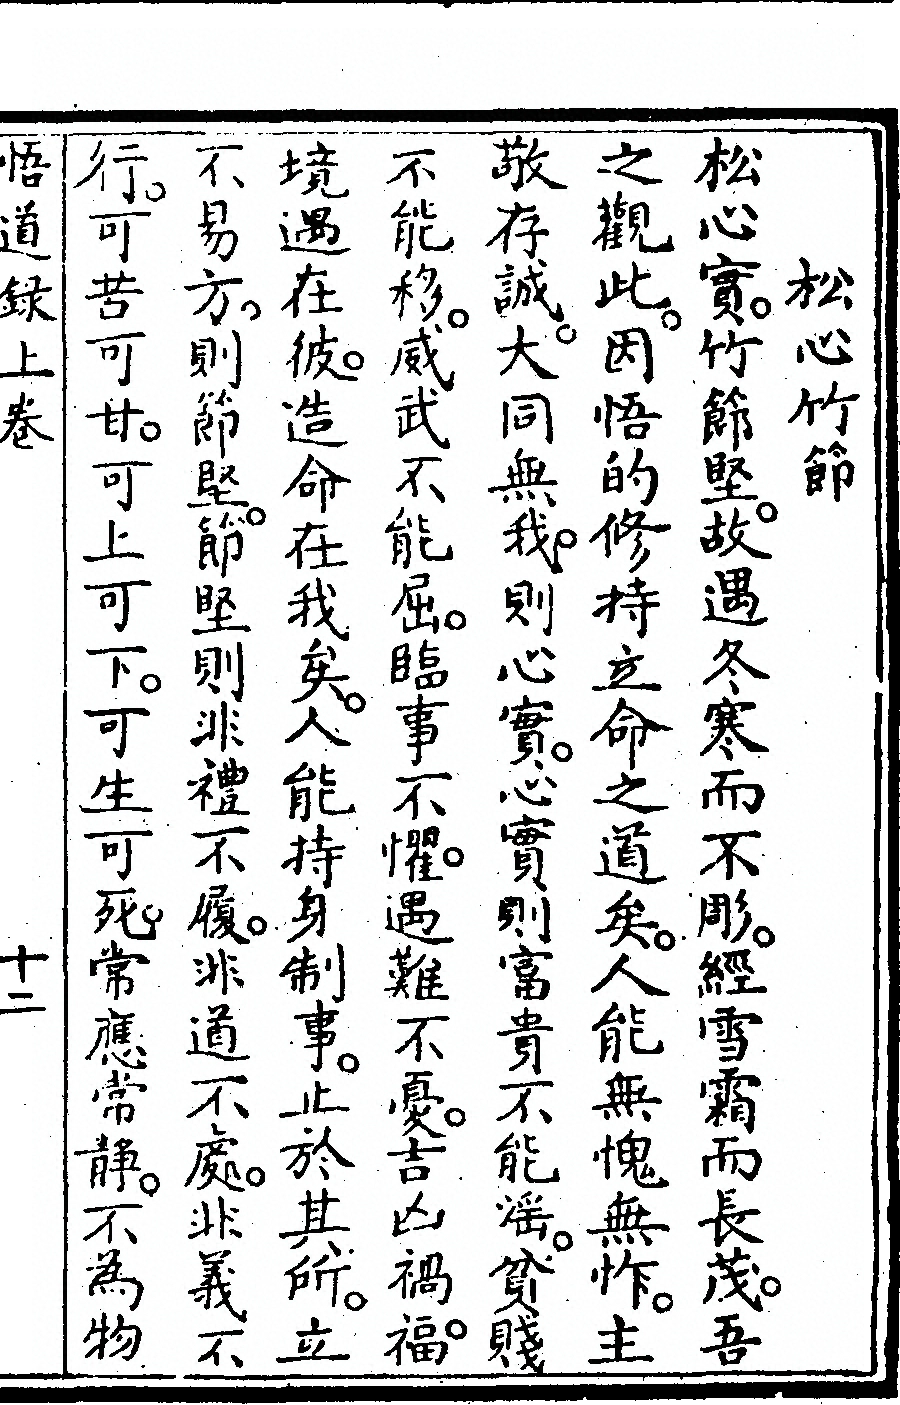 松心竹節
松心實。竹節堅。故遇冬寒而不彫。經雪霜而長茂。吾
之觀此。因悟的修持立命之道矣。人能無愧無怍。主
敬存誠。大同無我。則心實。心實則富貴不能滛。貧賤
不能移。威武不能屈。臨事不懼。遇難不憂。吉凶禍福。
境遇在彼。造命在我矣。人能持身制事。止於其所。立
不易方。則節堅。節堅則非禮不履。非道不處。非義不
行。可苦可甘。可上可下。可生可死。常應常靜。不為物
悟道録上卷 十二